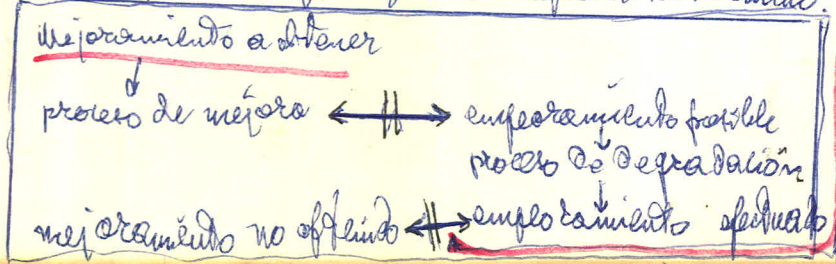 Mejoramiento a obtener
proceso de mejora
empeoramiento posible
proceso de degradación
mejoramiento no obtenido
empeoramiento efectuado